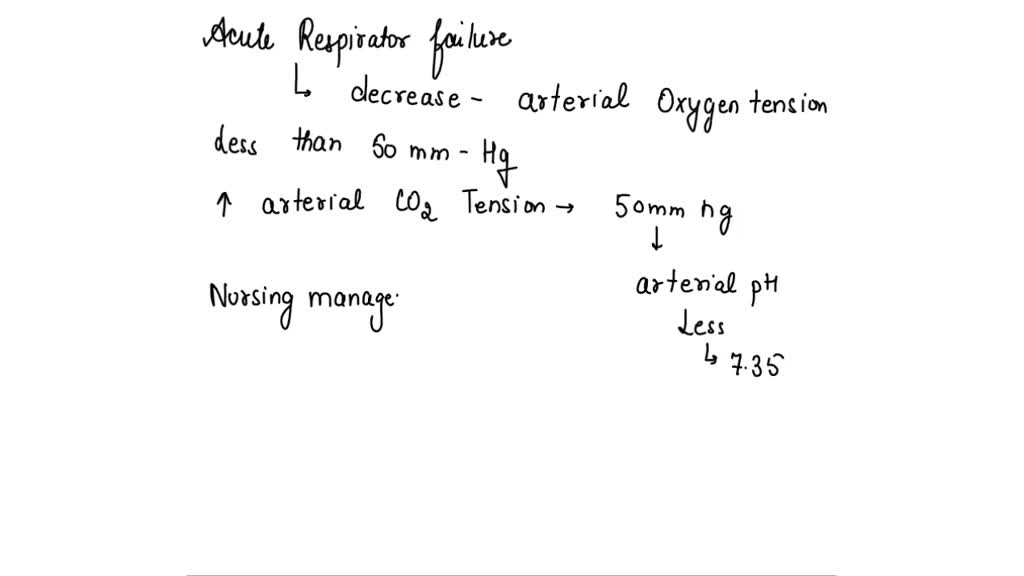 Acute Respirator failure
↳ decrease - arterial Oxygen tension
Less than 50 mm - Hg
↑ arterial CO2 Tension → 50mm hg
↓
arterial pH
Nursing manage.
Less
↳ 7.35